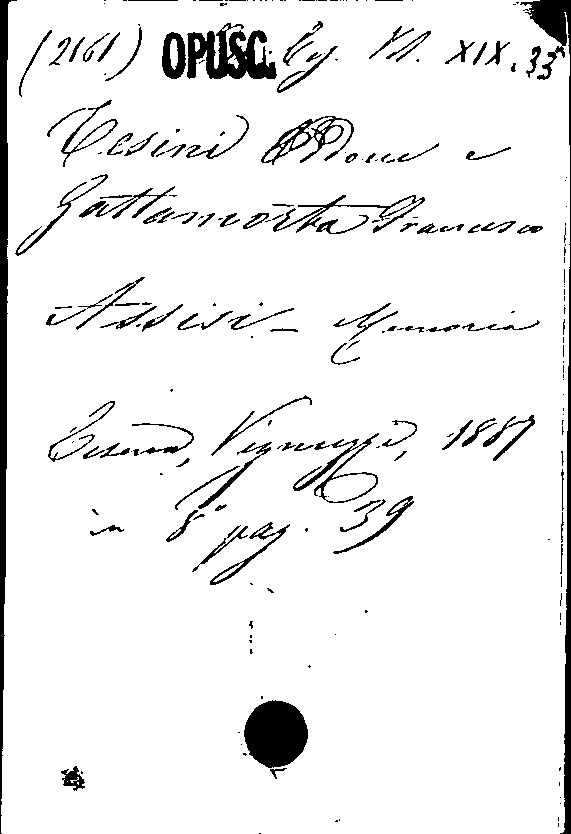 (2161) OPUSC. XIX. 35
Tesini Oddone e
Gattamorta Francesco
Assisi - Memoria
Cesena, Vignuzzi, 1887
in 8° pag. 39